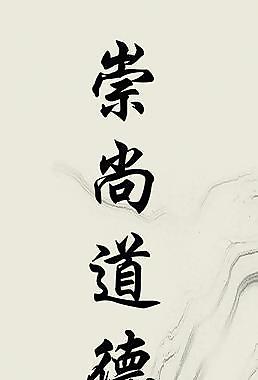 崇尚道德